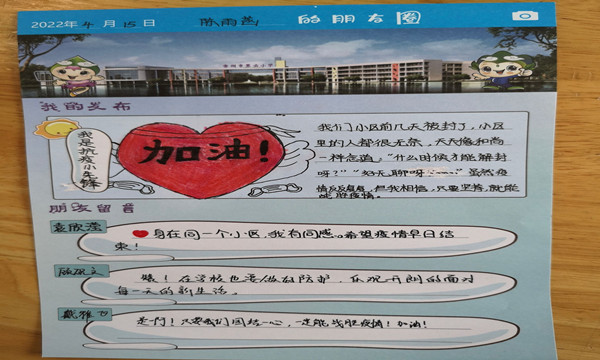 2022年4月15日 的朋友圈
我的发布
我是抗疫小先锋
加油!
我们小区前几天被封了,小区
里的人都很无奈,天天像和尚
一样念道,"什么时候才能解封
呀?""好无聊呀……"虽然疫
情反反复复,但我相信,只要坚持,就能
战胜疫情。
朋友留言
袁欣滢
身在同一个小区,我有同感。希望疫情早日结
束!
嗯!在学校也要做好防护,乐观开朗的面对
每一天的新生活。
戴雅
是啊!只要我们团结一心,一定能战胜疫情!加油!